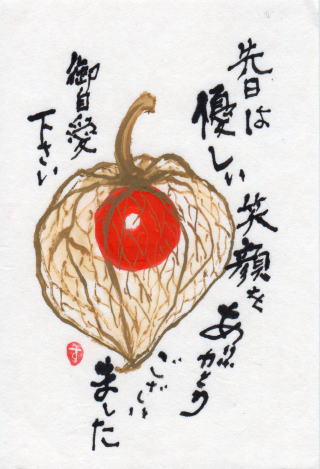 先日は
優しい笑顔を
ありがとう
ございました
御自愛
下さい
す